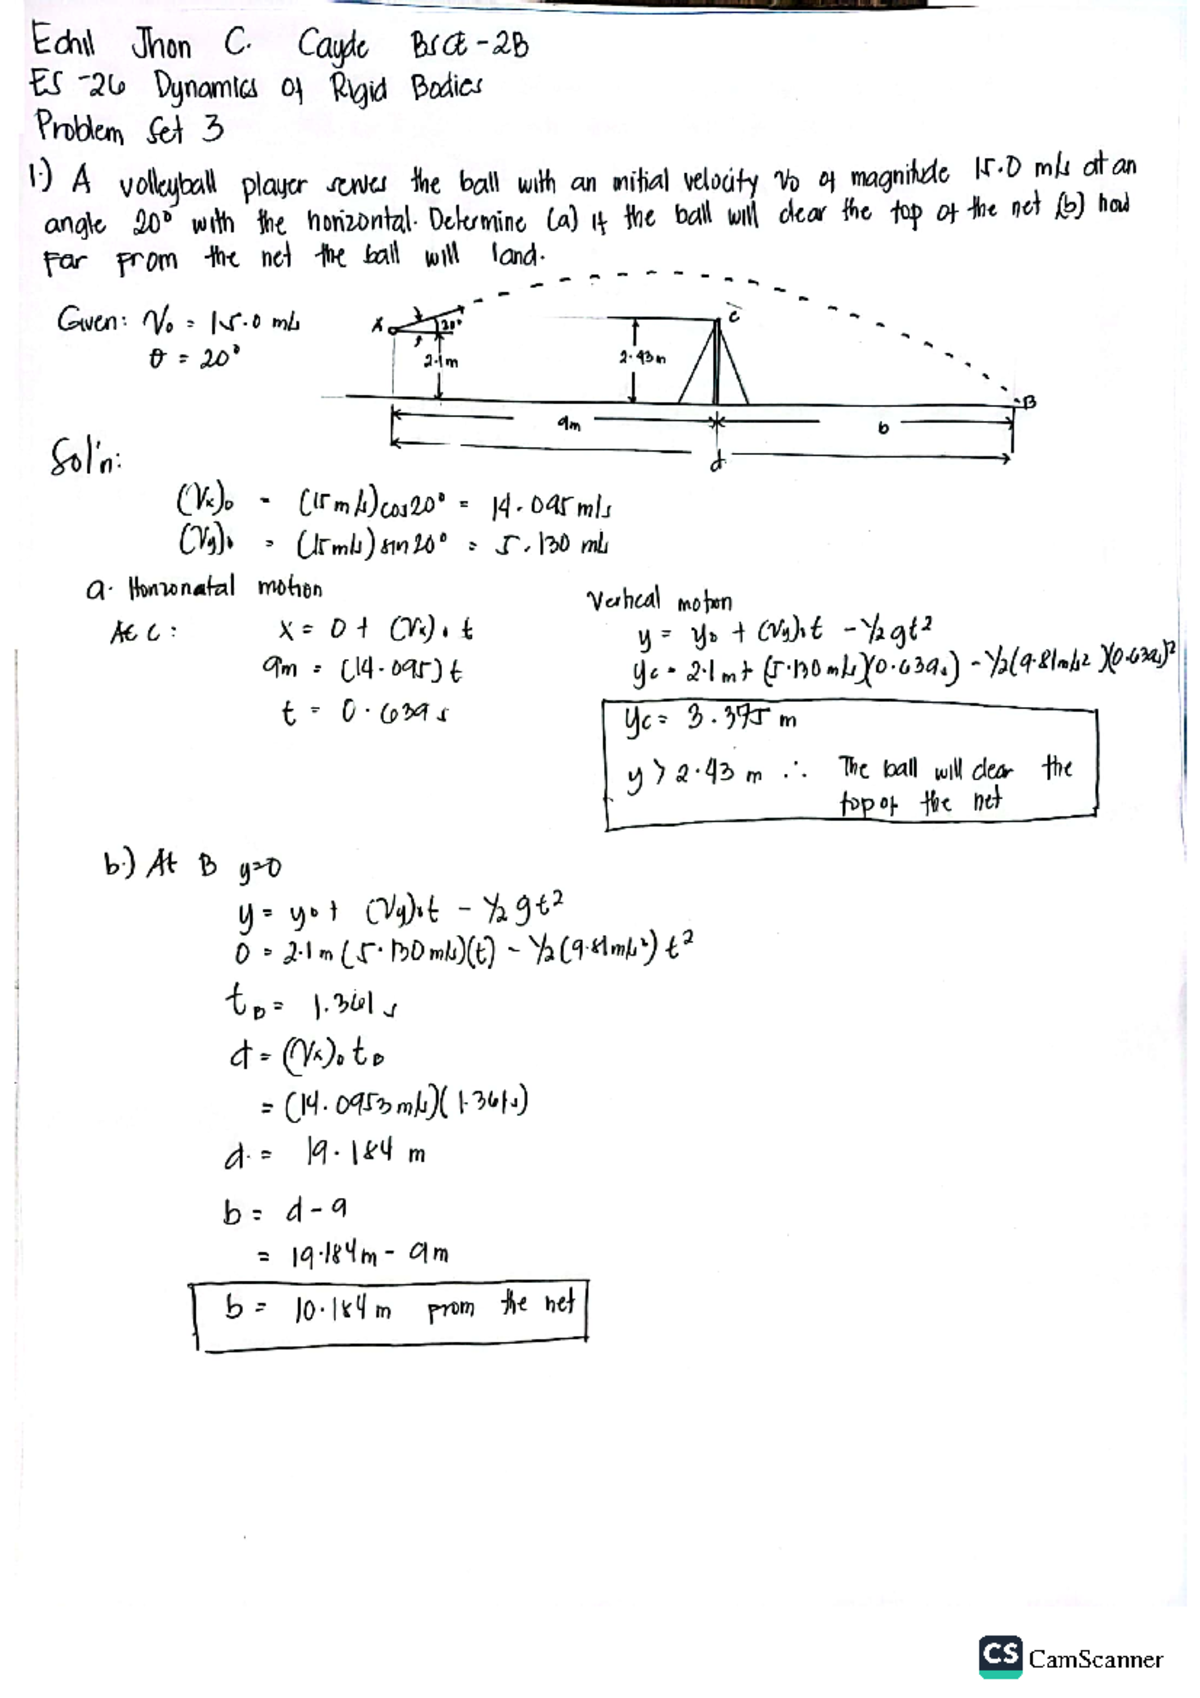 Echil Jhon C. Cayde BSCE-2B
ES-26 Dynamics of Rigid Bodies
Problem Set 3
1.) A volleyball player serves the ball with an initial velocity V0 of magnitude 15.0 m/s at an
angle 20° with the horizontal. Determine (a) if the ball will clear the top of the net (b) how
far from the net the ball will land.
Given: V0 = 15.0 m/s
θ = 20°
A
20°
2.1m
2.43m
C
B
9m
b
d
Sol'n:
(Vx)0 = (15 m/s)cos20° = 14.095 m/s
(Vy)0 = (15 m/s) sin 20° = 5.130 m/s
a. Honzonatal motion
At C: x = 0 + (Vx)0 t
9m = (14.095)t
t = 0.639 s
Vertical motion
y = y0 + (Vy)0t - 1/2gt²
yc = 2.1m + (5.130 m/s)(0.639s) - 1/2(9.81m/s2)(0.639s)²
yc = 3.375 m
y > 2.43 m ∴ The ball will clear the
top of the net
b.) At B y=0
y = y0 + (Vy)0t - 1/2 gt²
0 = 2.1m (5.130 m/s)(t) - 1/2(9.81m/s²) t²
tB = 1.361 s
d = (Vx)0 tB
= (14.0953 m/s)(1.361s)
d = 19.184 m
b = d - 9
= 19.184m - 9m
b = 10.184 m from the net
CS CamScanner